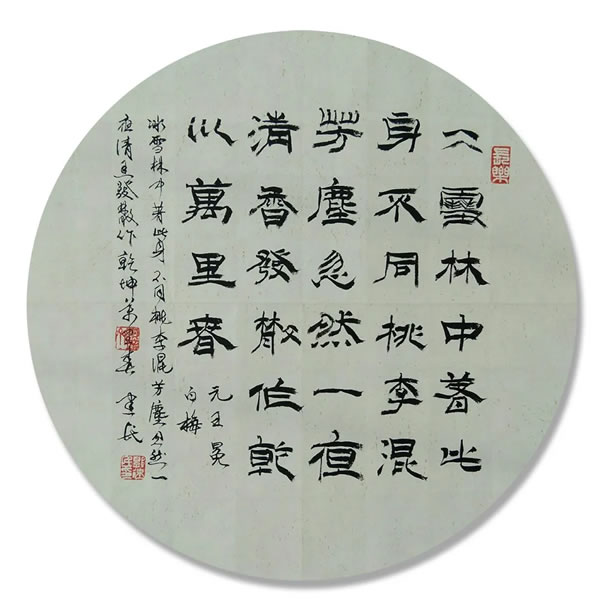 長樂
仌雪林中著此
身不同桃李混
芳塵忽然一夜
清香發散作乾
巛萬里春
元王冕
白梅
冰雪林中著此身不同桃李混芳塵忽然一
夜清香發散作乾坤萬里春